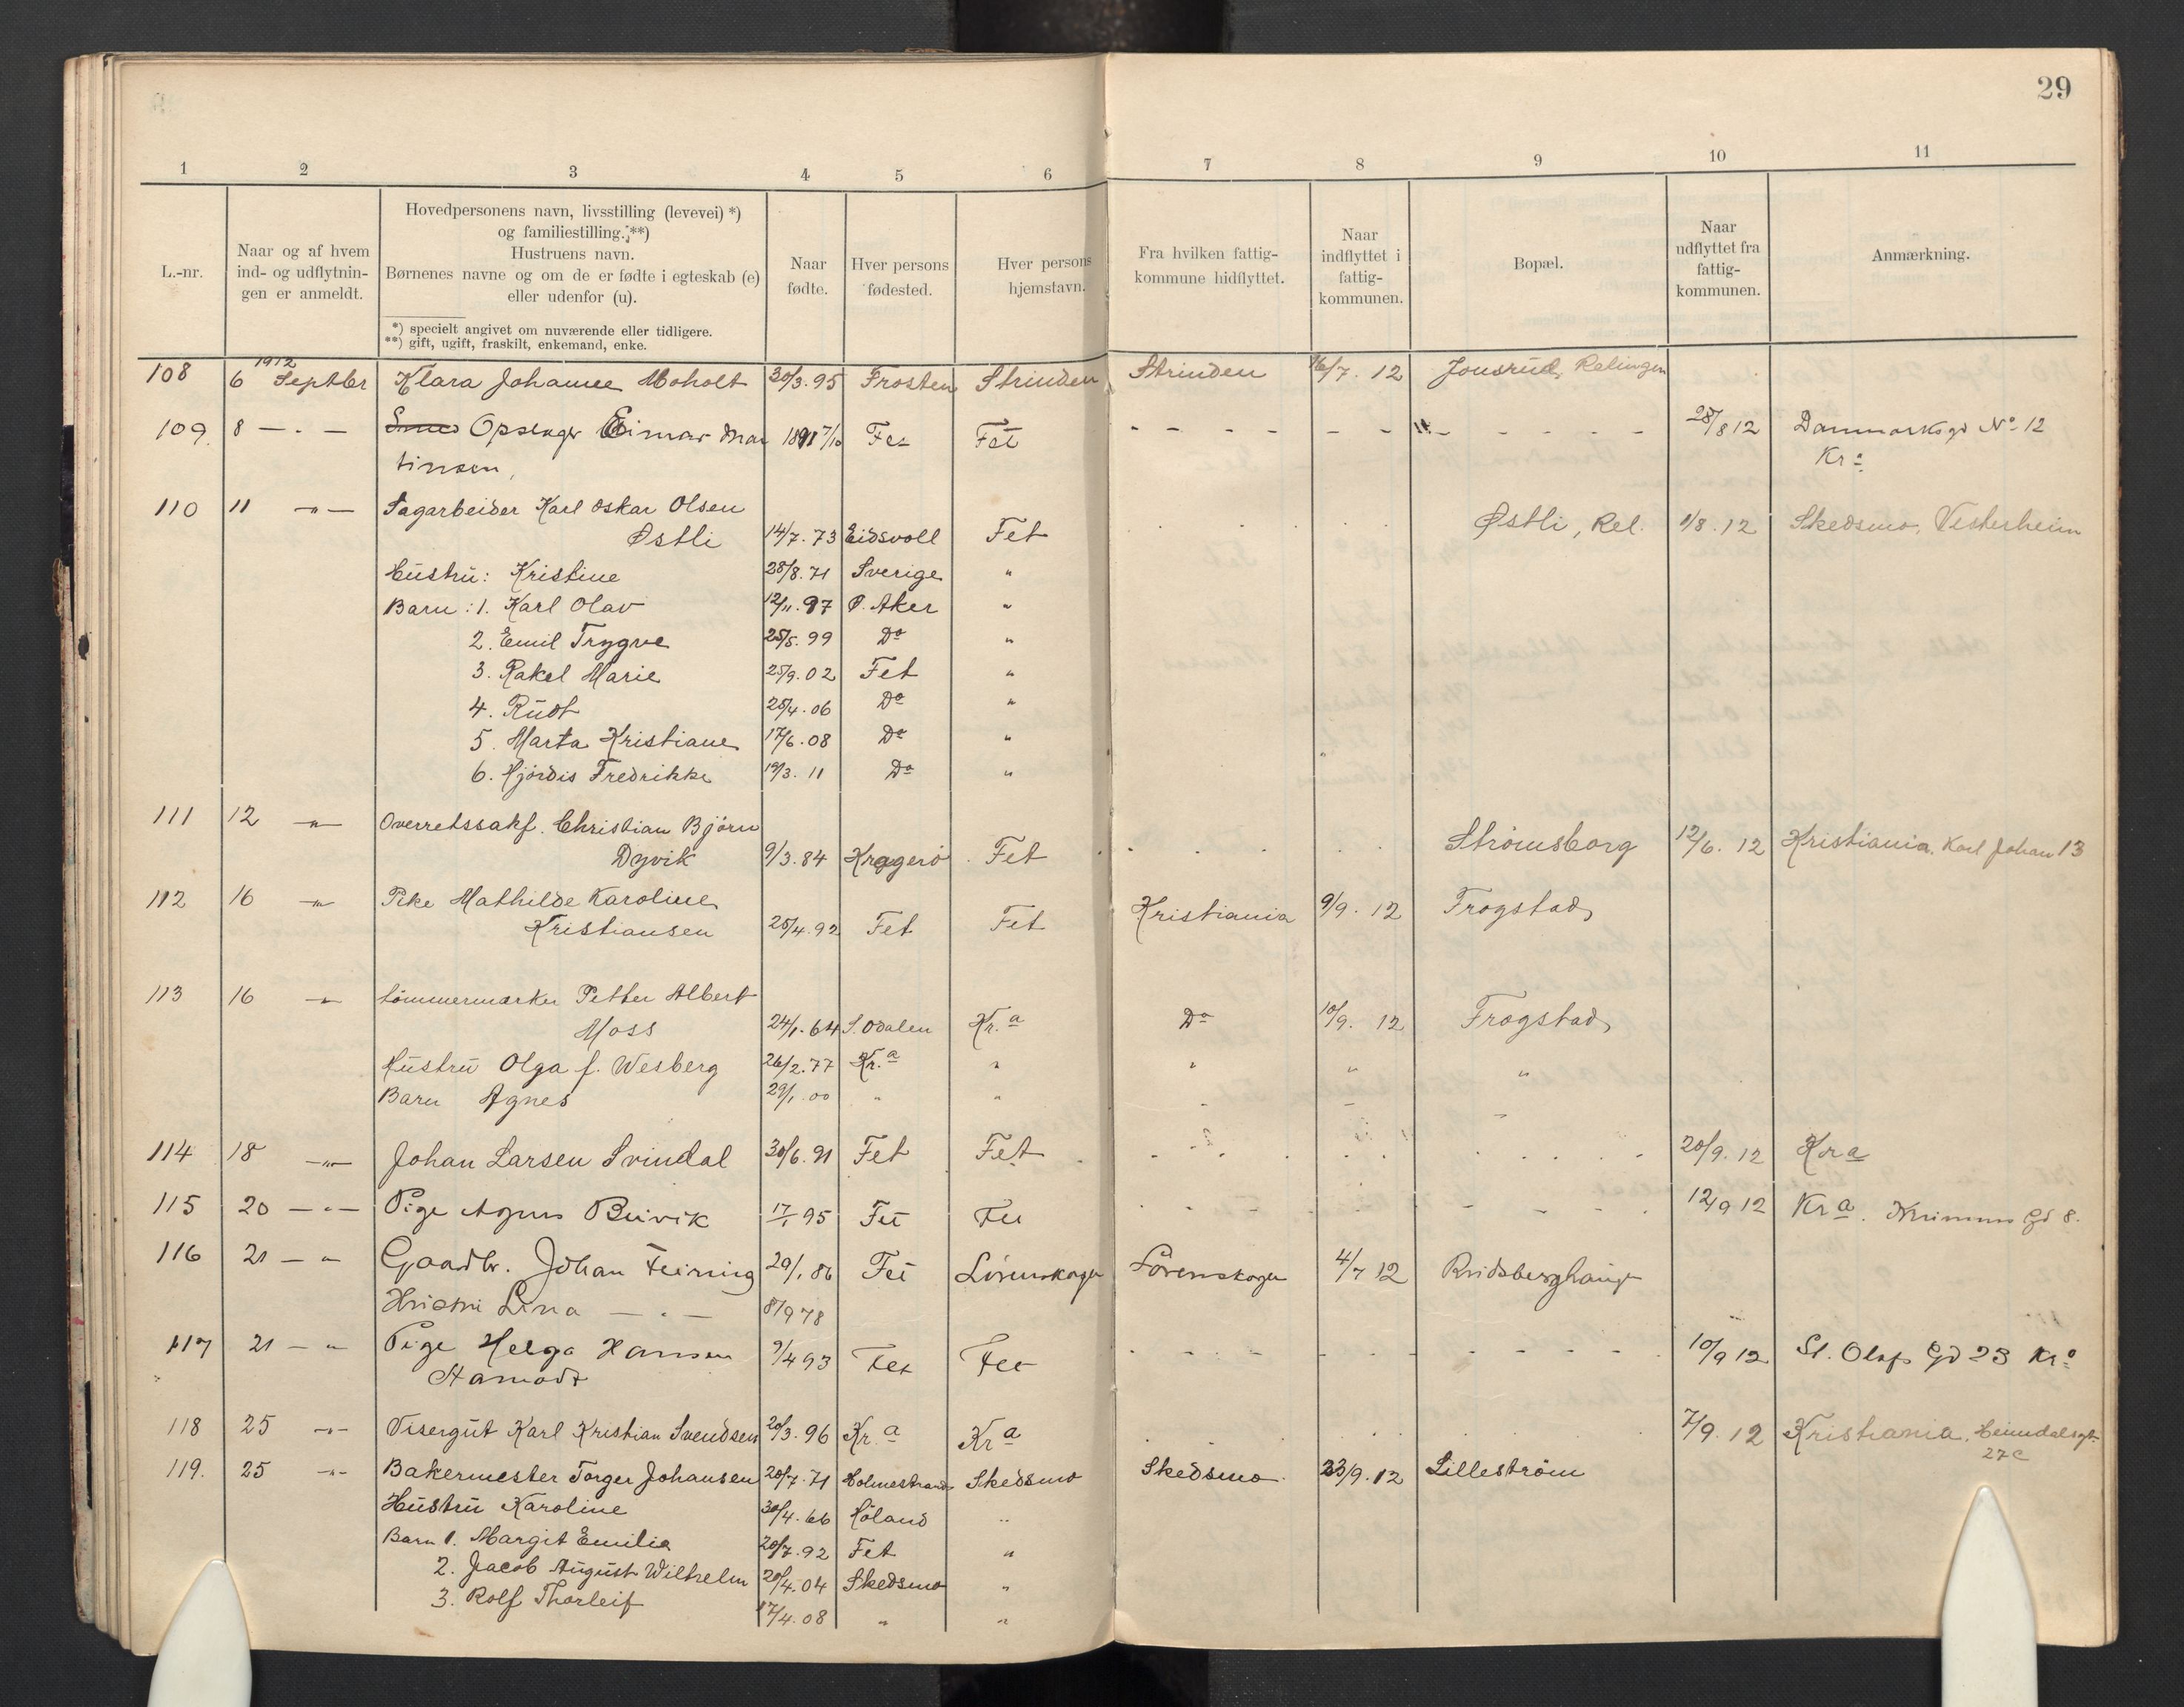 29
1 2 3 4 5 6 7 8 9 10 11
L.-nr.
Naar og af hvem
ind- og udflytnin-
gen er anmeldt.
Hovedpersonens navn, livsstilling (levevei) *)
og familiestilling. **)
Hustruens navn.
Børnenes navne og om de er fødte i egteskab (e)
eller udenfor (u).
*) specielt angivet om nuværende eller tidligere.
**) gift, ugift, fraskilt, enkemand, enke.
Naar
fødte.
Hver persons
fødested.
Hver persons
hjemstavn.
Fra hvilken fattig-
kommune hidflyttet.
Naar
indflyttet i
fattig-
kommunen.
Bopæl.
Naar
udflyttet fra
fattig-
kommunen.
Anmærkning.
1912
108 6 Septbr Klara Johanne Moholt 30/3.95 Frosten Strinden Strinden 16/7. 12 Jonsrud, Relingen
109 8 — " — Opsenger Einar Mar 1891 7/10 Fet Fet - - - - - - - - - - - 28/8 12 Danmarksgd No 12
tinsen, Kra
110 11 — " — Sagarbeider Karl Oskar Olsen
Østli 14/7. 73 Eidsvoll Fet . . . . . . Østli, Rel. 1/8. 12 Skedsmo, Vesterheim
Hustru: Kristine 28/8. 71 Sverige "
Barn: 1. Karl Olav 12/11. 97 Ø. Aker "
2. Emil Trygve 25/5. 99 Do "
3. Rakel Marie 25/9. 02 Fet "
4. Rudt 25/4. 06 Do "
5. Marta Kristiane 17/6. 08 Do "
6. Hjørdis Fredrikke 19/3. 11 Do "
111 12 — " — Overretssakf. Christian Bjørn
Dyvik 9/3. 84 Kragerø Fet . . . . . Strømsborg 12/6. 12 Kristiania. Karl Johan 13
112 16 — " — Pike Mathilde Karoline
Kristiansen 25/4. 92 Fet Fet Kristiania 9/9. 12 Frogstad
113 16 — " — Tømmermærker Petter Albert
Moss 24/1. 64 S. Odalen Kr.a Do 10/9. 12 Frogstad
Hustru Olga f. Wesberg 26/2. 77 Kr.a " " " "
Barn Agnes 29/1. 00 " " " " "
114 18 — " — Johan Larsen Svindal 30/6. 91 Fet Fet . . . . . . . . . . . 20/9. 12 Kra
115 20 — " — Pige Agnes Buvik 17/1 95 Fet Fet - - - - - - - - - 12/9 12 Kra. Gd 8.
116 21 — " Gaardbr. Johan Feiring 29/1 86 Fet Lørenskogen Lørenskogen 4/7 12
Hustru Lina — " — 8/9 78
117 21 — " Pige Helga Hansen 9/4 93 Fet Fet - - - - - - - - - - - 10/9 12 St. Olafs Gd 23 Kra
118 25 — " — Visergut Karl Kristian Svendsen 20/3. 96 Kr.a Kra . . . . . . . 7/9. 12 Kristiania, Heimdalsgt.
27c
119. 25 — " — Bakermester Torger Johansen 20/7. 71 Holmestrand Skedsmo Skedsmo. 23/9. 12 Lillestrøm
Hustru Karoline 30/4. 66 Høland "
Barn 1. Margit Emilie 20/7. 92 Fet "
2. Jacob August Wilhelm 20/4. 04 Skedsmo "
3. Rolf Thorleif 17/4. 08 " "